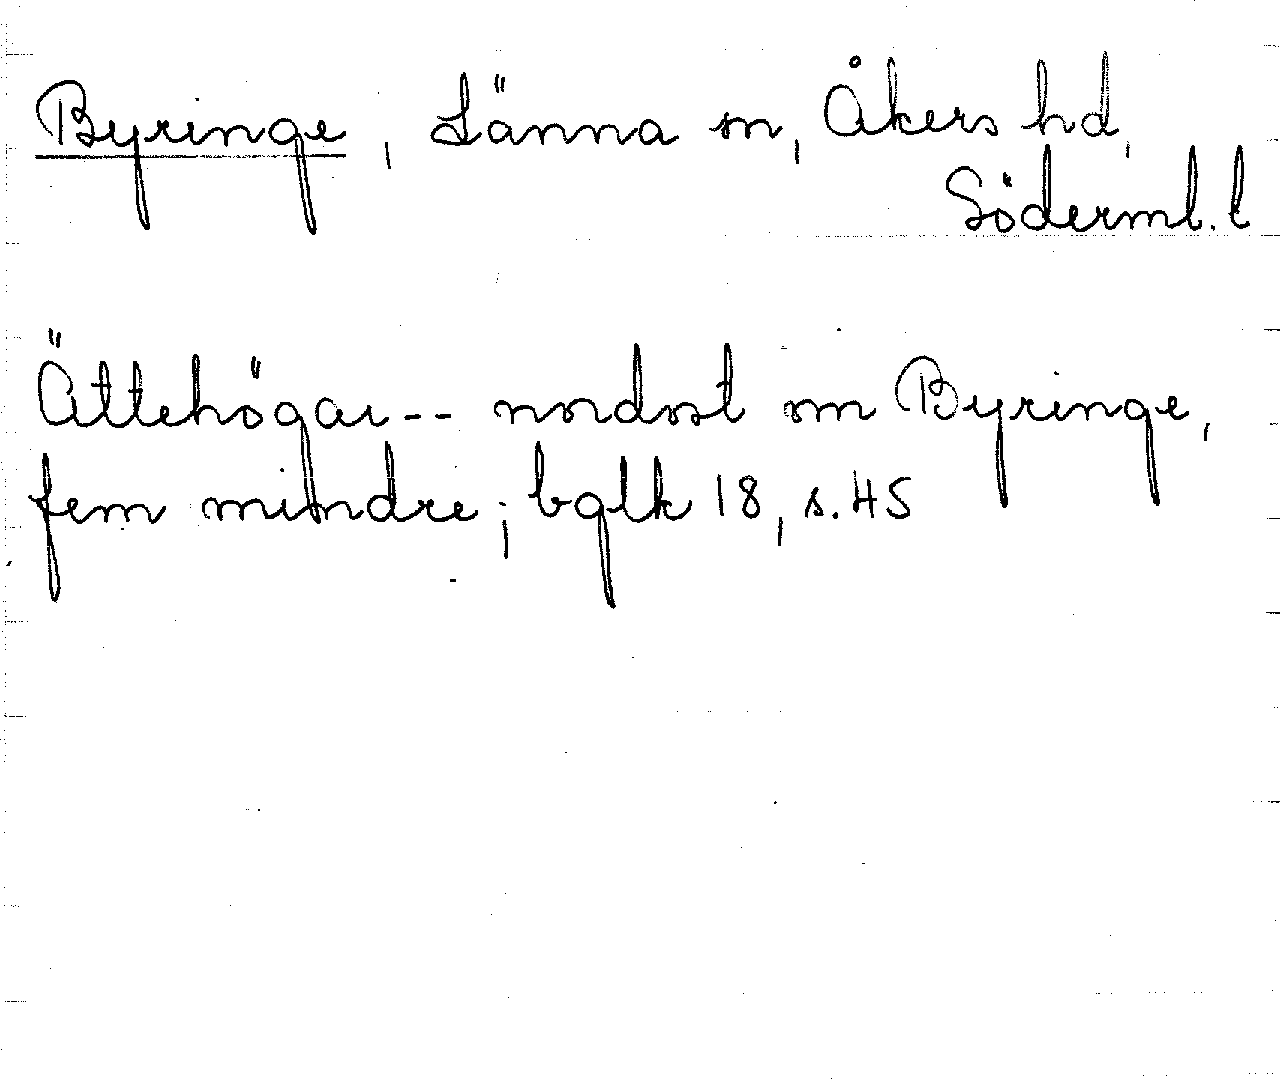 Byringe, Länna sn, Åkers hd,
Söderml. l
Ättehögar-- nordost om Byringe,
fem mindre; bglk 18, s. 45